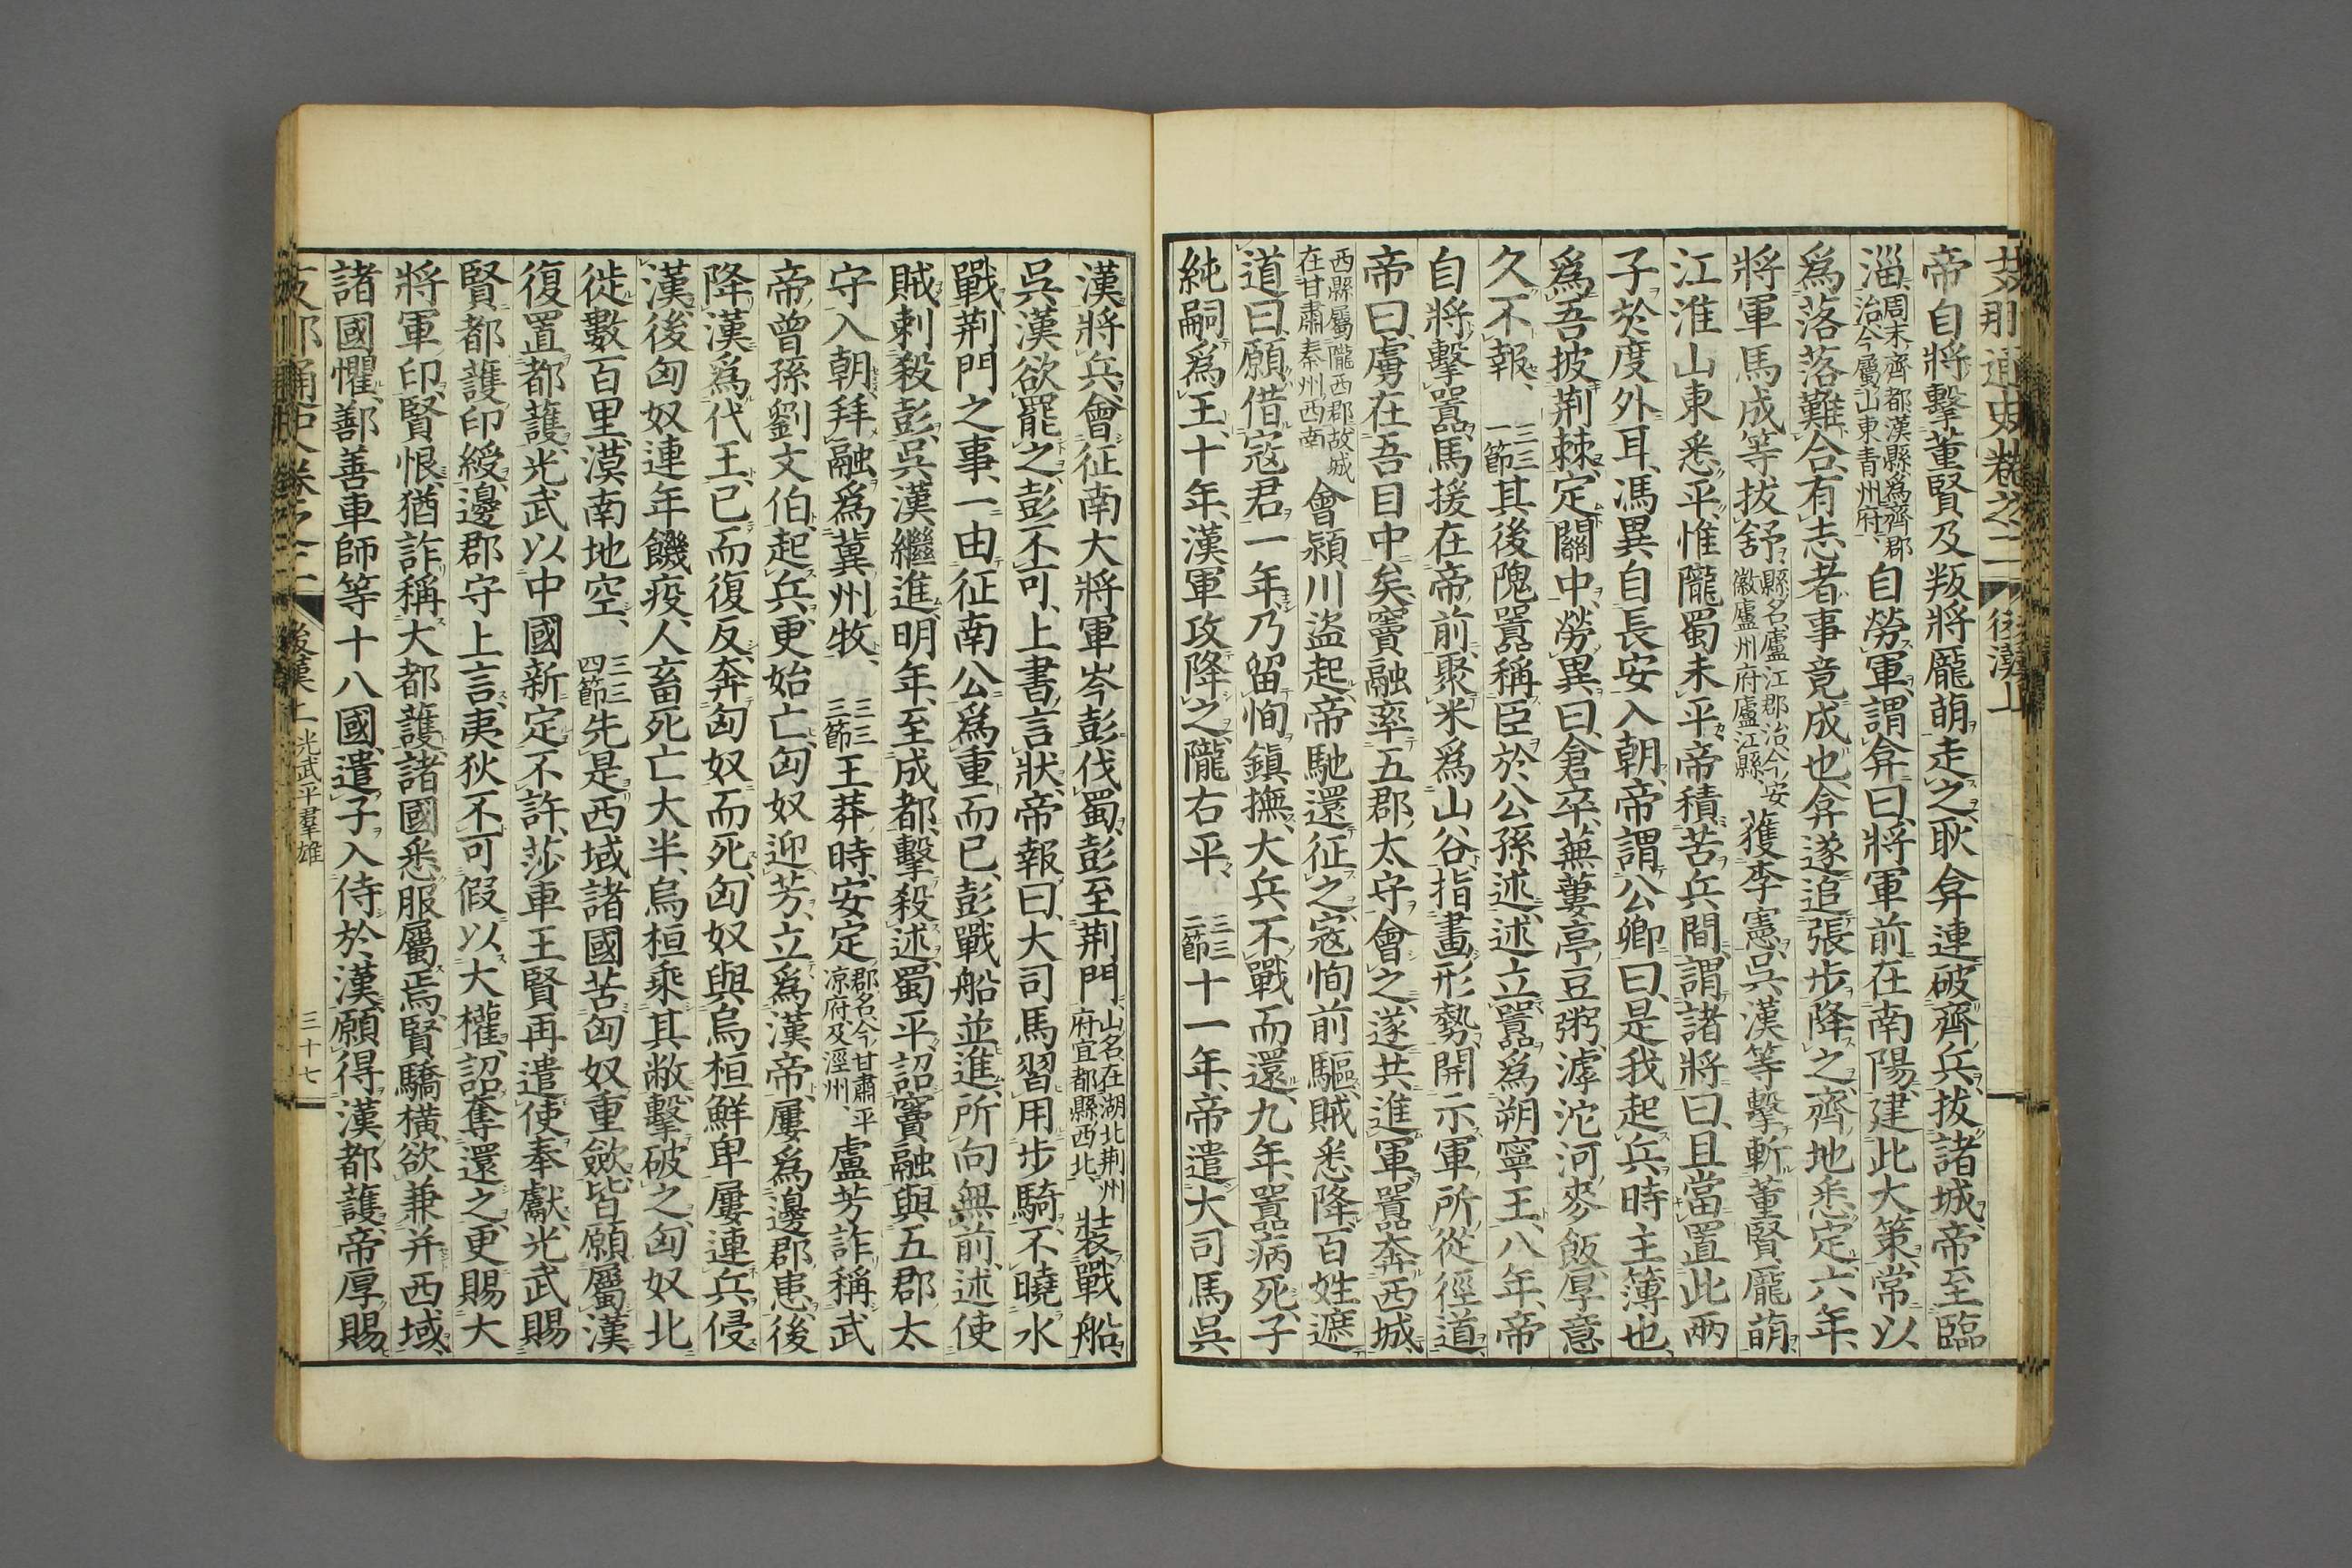 支那通史卷之二　後漢上
帝自將擊董賢及叛將龐萌走之、耿弇連破齊兵、拔諸城、帝至臨
淄、周末齊都、漢縣、爲齊郡治、今屬山東青州府、自勞軍、謂弇曰、將軍前在南陽、建此大策、常以
爲落落難合、有志者事竟成也、弇遂追張步降之、齊地悉定、六年、
將軍馬成等拔舒、縣名、廬江郡治、今安徽廬州府廬江縣、獲李憲、吳漢等擊斬董賢龐萌、
江淮山東悉平、惟隴蜀未平、帝積苦兵間、謂諸將曰、且當置此兩
子於度外耳、馮異自長安入朝、帝謂公卿曰、是我起兵時主簿也、
爲吾披荆棘、定關中、勞異曰、倉卒蕪蔞亭豆粥、滹沱河麥飯、厚意
久不報、三三一節其後隗囂稱臣於公孫述、述立囂爲朔寧王、八年、帝
自將擊囂、馬援在帝前、聚米爲山谷、指畫形勢、開示軍所從徑道、
帝曰、虜在吾目中矣、竇融率五郡太守會之、遂共進軍、囂奔西城、
西縣屬隴西郡、故城在甘肅秦州西南會潁川盜起、帝馳還征之、寇恂前驅、賊悉降、百姓遮
道曰、願借寇君一年、乃留恂鎭撫、大兵不戰而還、九年、囂病死、子
純嗣爲王、十年、漢軍攻降之、隴右平、三三二節十一年、帝遣大司馬吳
漢將兵、會征南大將軍岑彭伐蜀、彭至荆門、山名、在湖北荆州府宜都縣西北、裝戰船、
吳漢欲罷之、彭不可、上書言狀、帝報曰、大司馬習用步騎、不曉水
戰、荆門之事、一由征南公爲重而已、彭戰船並進、所向無前、述使
賊刺殺彭、吳漢繼進、明年、至成都、擊殺述、蜀平、詔竇融與五郡太
守入朝、拜融爲冀州牧、三三三節王莽時、安定郡名、今甘肅平凉府及涇州、盧芳詐稱武
帝曾孫劉文伯、起兵、更始亡、匈奴迎芳、立爲漢帝、屢爲邊郡患、後
降漢爲代王、已而復反、奔匈奴而死、匈奴與烏桓鮮卑屢連兵侵
漢、後匈奴連年饑疫、人畜死亡大半、烏桓乘其敝、擊破之、匈奴北
徙數百里、漠南地空、三三四節先是西域諸國苦匈奴重歛、皆願屬漢
復置都護、光武以中國新定不許、莎車王賢再遣使奉獻、光武賜
賢都護印綬、邊郡守上言、夷狄不可假以大權、詔奪還之、更賜大
將軍印、賢恨、猶詐稱大都護、諸國悉服屬焉、賢驕橫、欲兼并西域、
諸國懼、鄯善車師等十八國、遣子入侍於漢、願得漢都護、帝厚賜
支那通史卷之二　後漢上　光武平羣雄　三十七